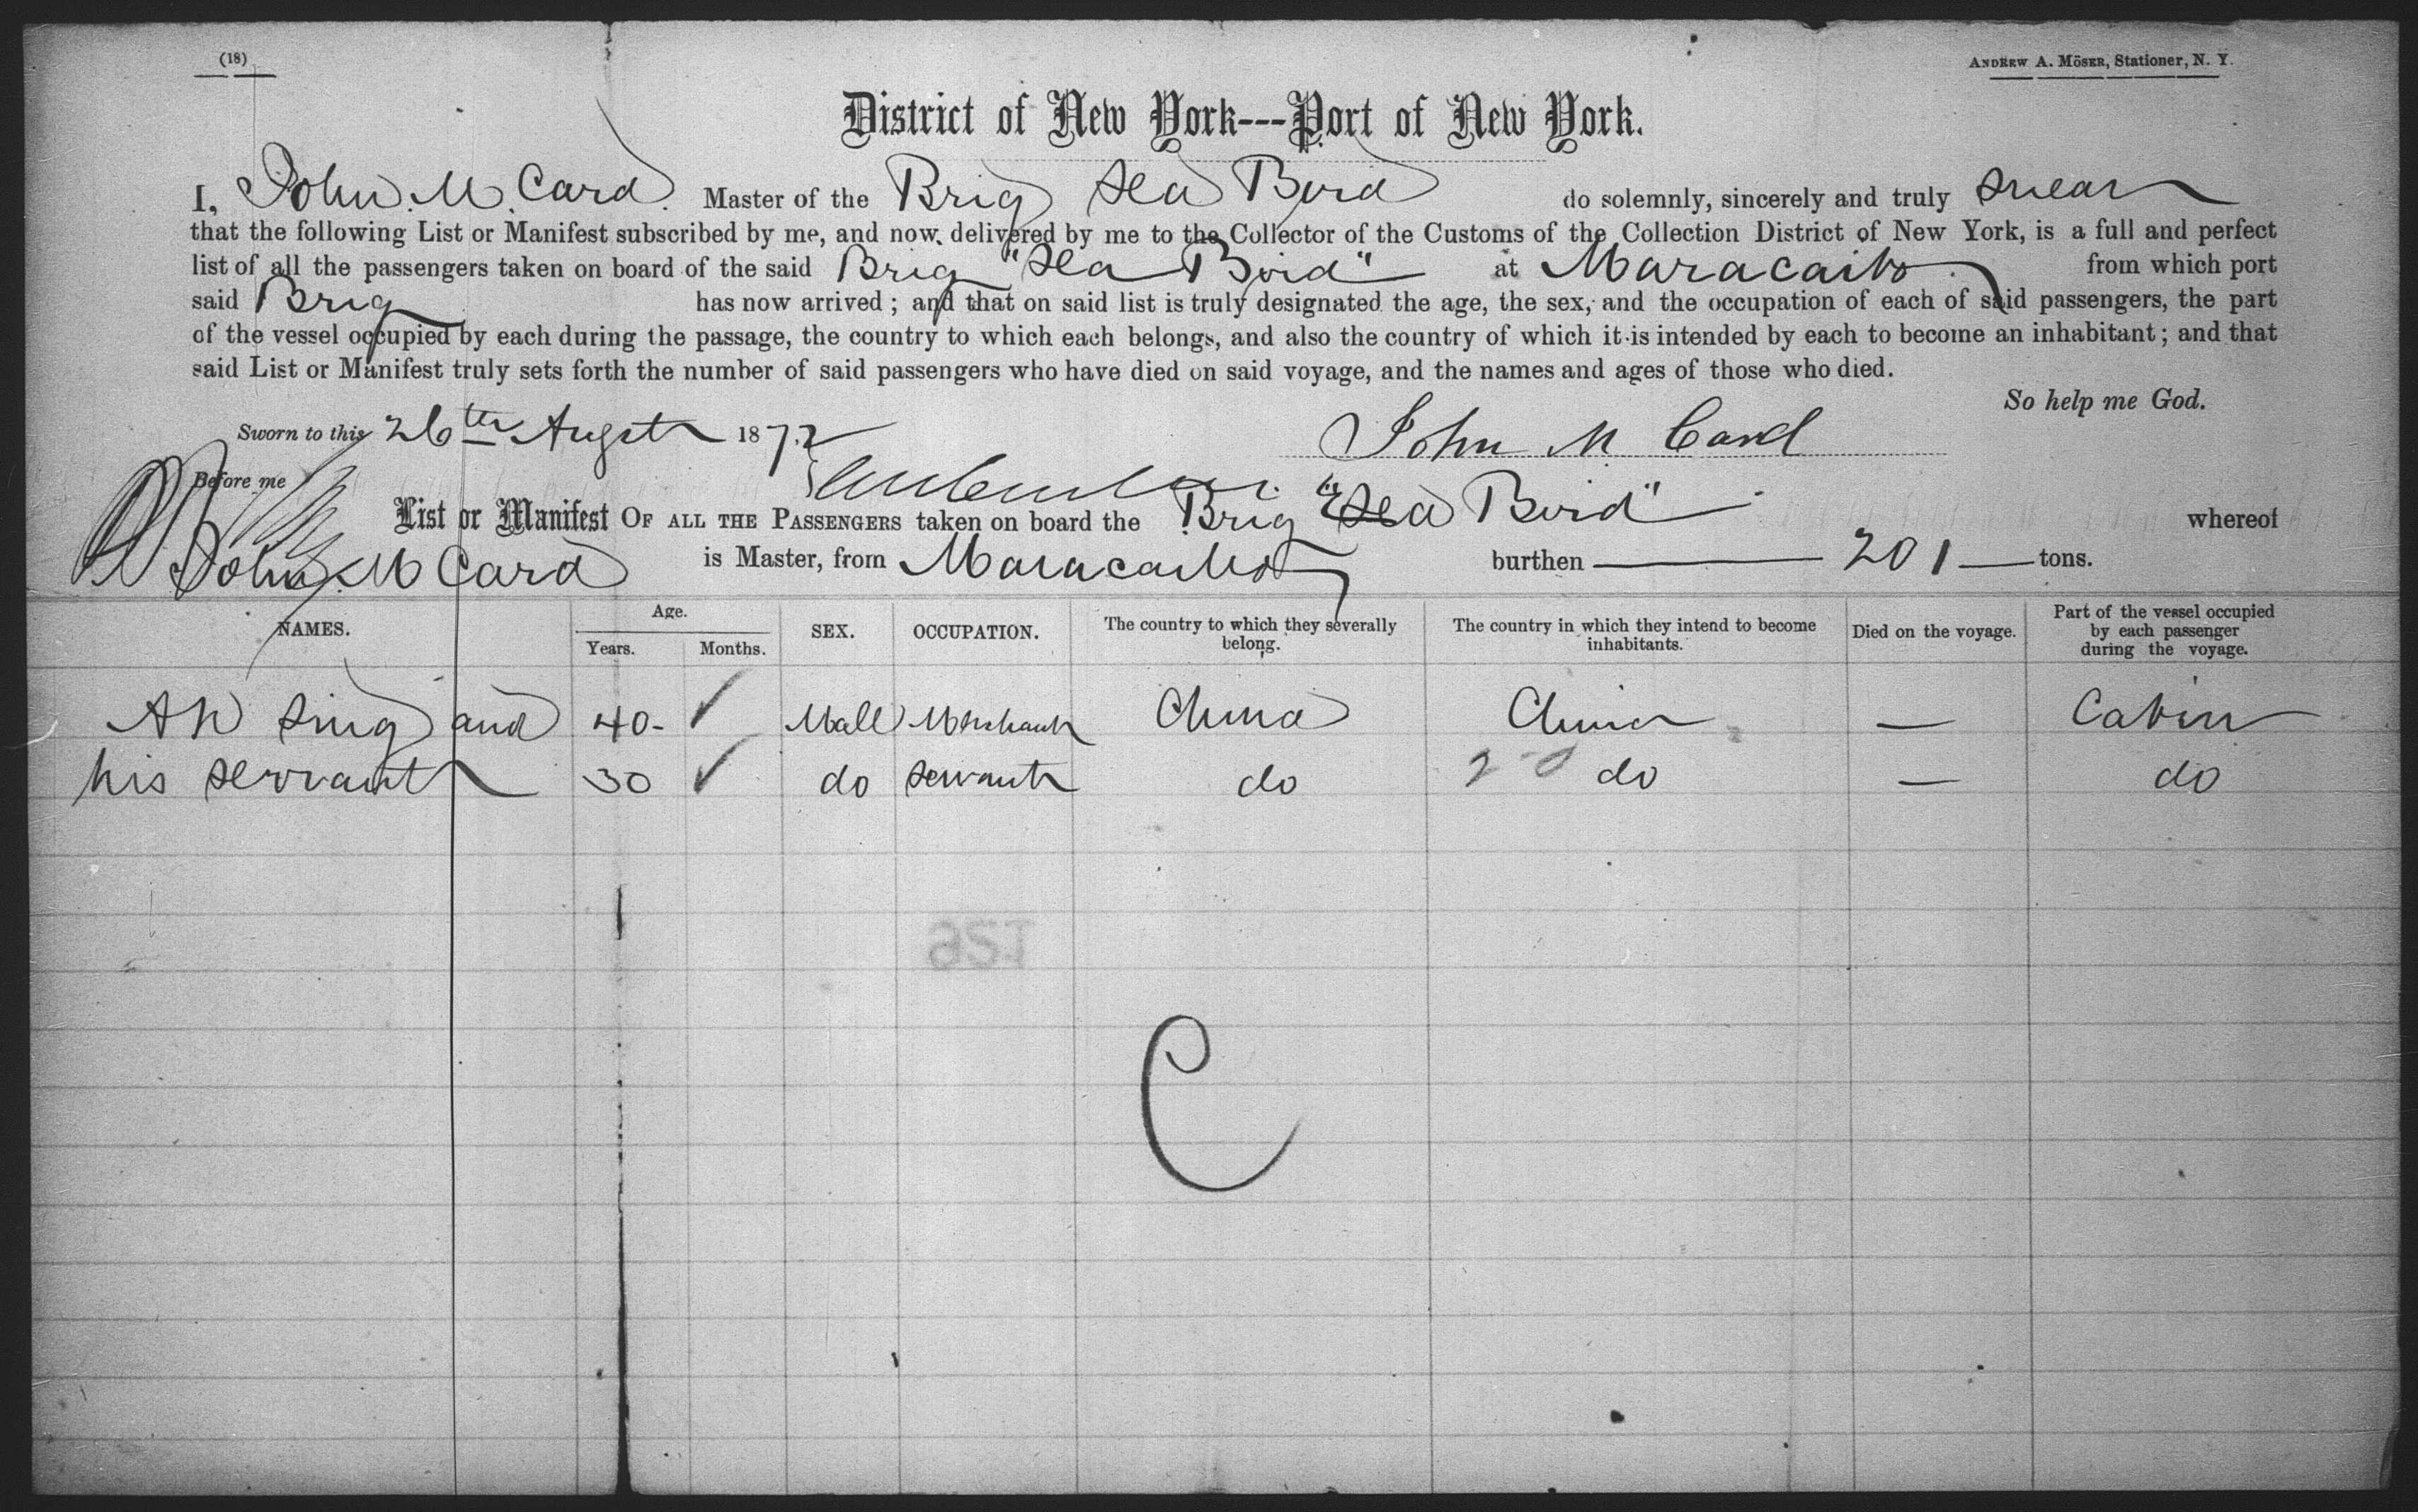 (18)
ANDREW A. MÖSER, Stationer, N. Y.
District of New York---Port of New York.
I, John. M. Card. Master of the Brig Sea Bird do solemnly, sincerely and truly swear
that the following List or Manifest subscribed by me, and now delivered by me to the Collector of the Customs of the Collection District of New York, is a full and perfect
list of all the passengers taken on board of the said Brig "Sea Bird" at Maracaibo from which port
said Brig has now arrived; and that on said list is truly designated the age, the sex, and the occupation of each of said passengers, the part
of the vessel occupied by each during the passage, the country to which each belongs, and also the country of which it is intended by each to become an inhabitant; and that
said List or Manifest truly sets forth the number of said passengers who have died on said voyage, and the names and ages of those who died.
So help me God.
Sworn to this 26th Augst 1872
John M Card
Before me
List or Manifest OF ALL THE PASSENGERS taken on board the Brig "Sea Bird" whereof
John. M Card is Master, from Maracaibo burthen 201 tons.
NAMES. Age. Years. Months. SEX. OCCUPATION. The country to which they severally belong. The country in which they intend to become inhabitants. Died on the voyage. Part of the vessel occupied by each passenger during the voyage.
Ah Sing and 40- ✓ Male Merchant China China — Cabin
his servant 30 ✓ do servant do do — do
126
C